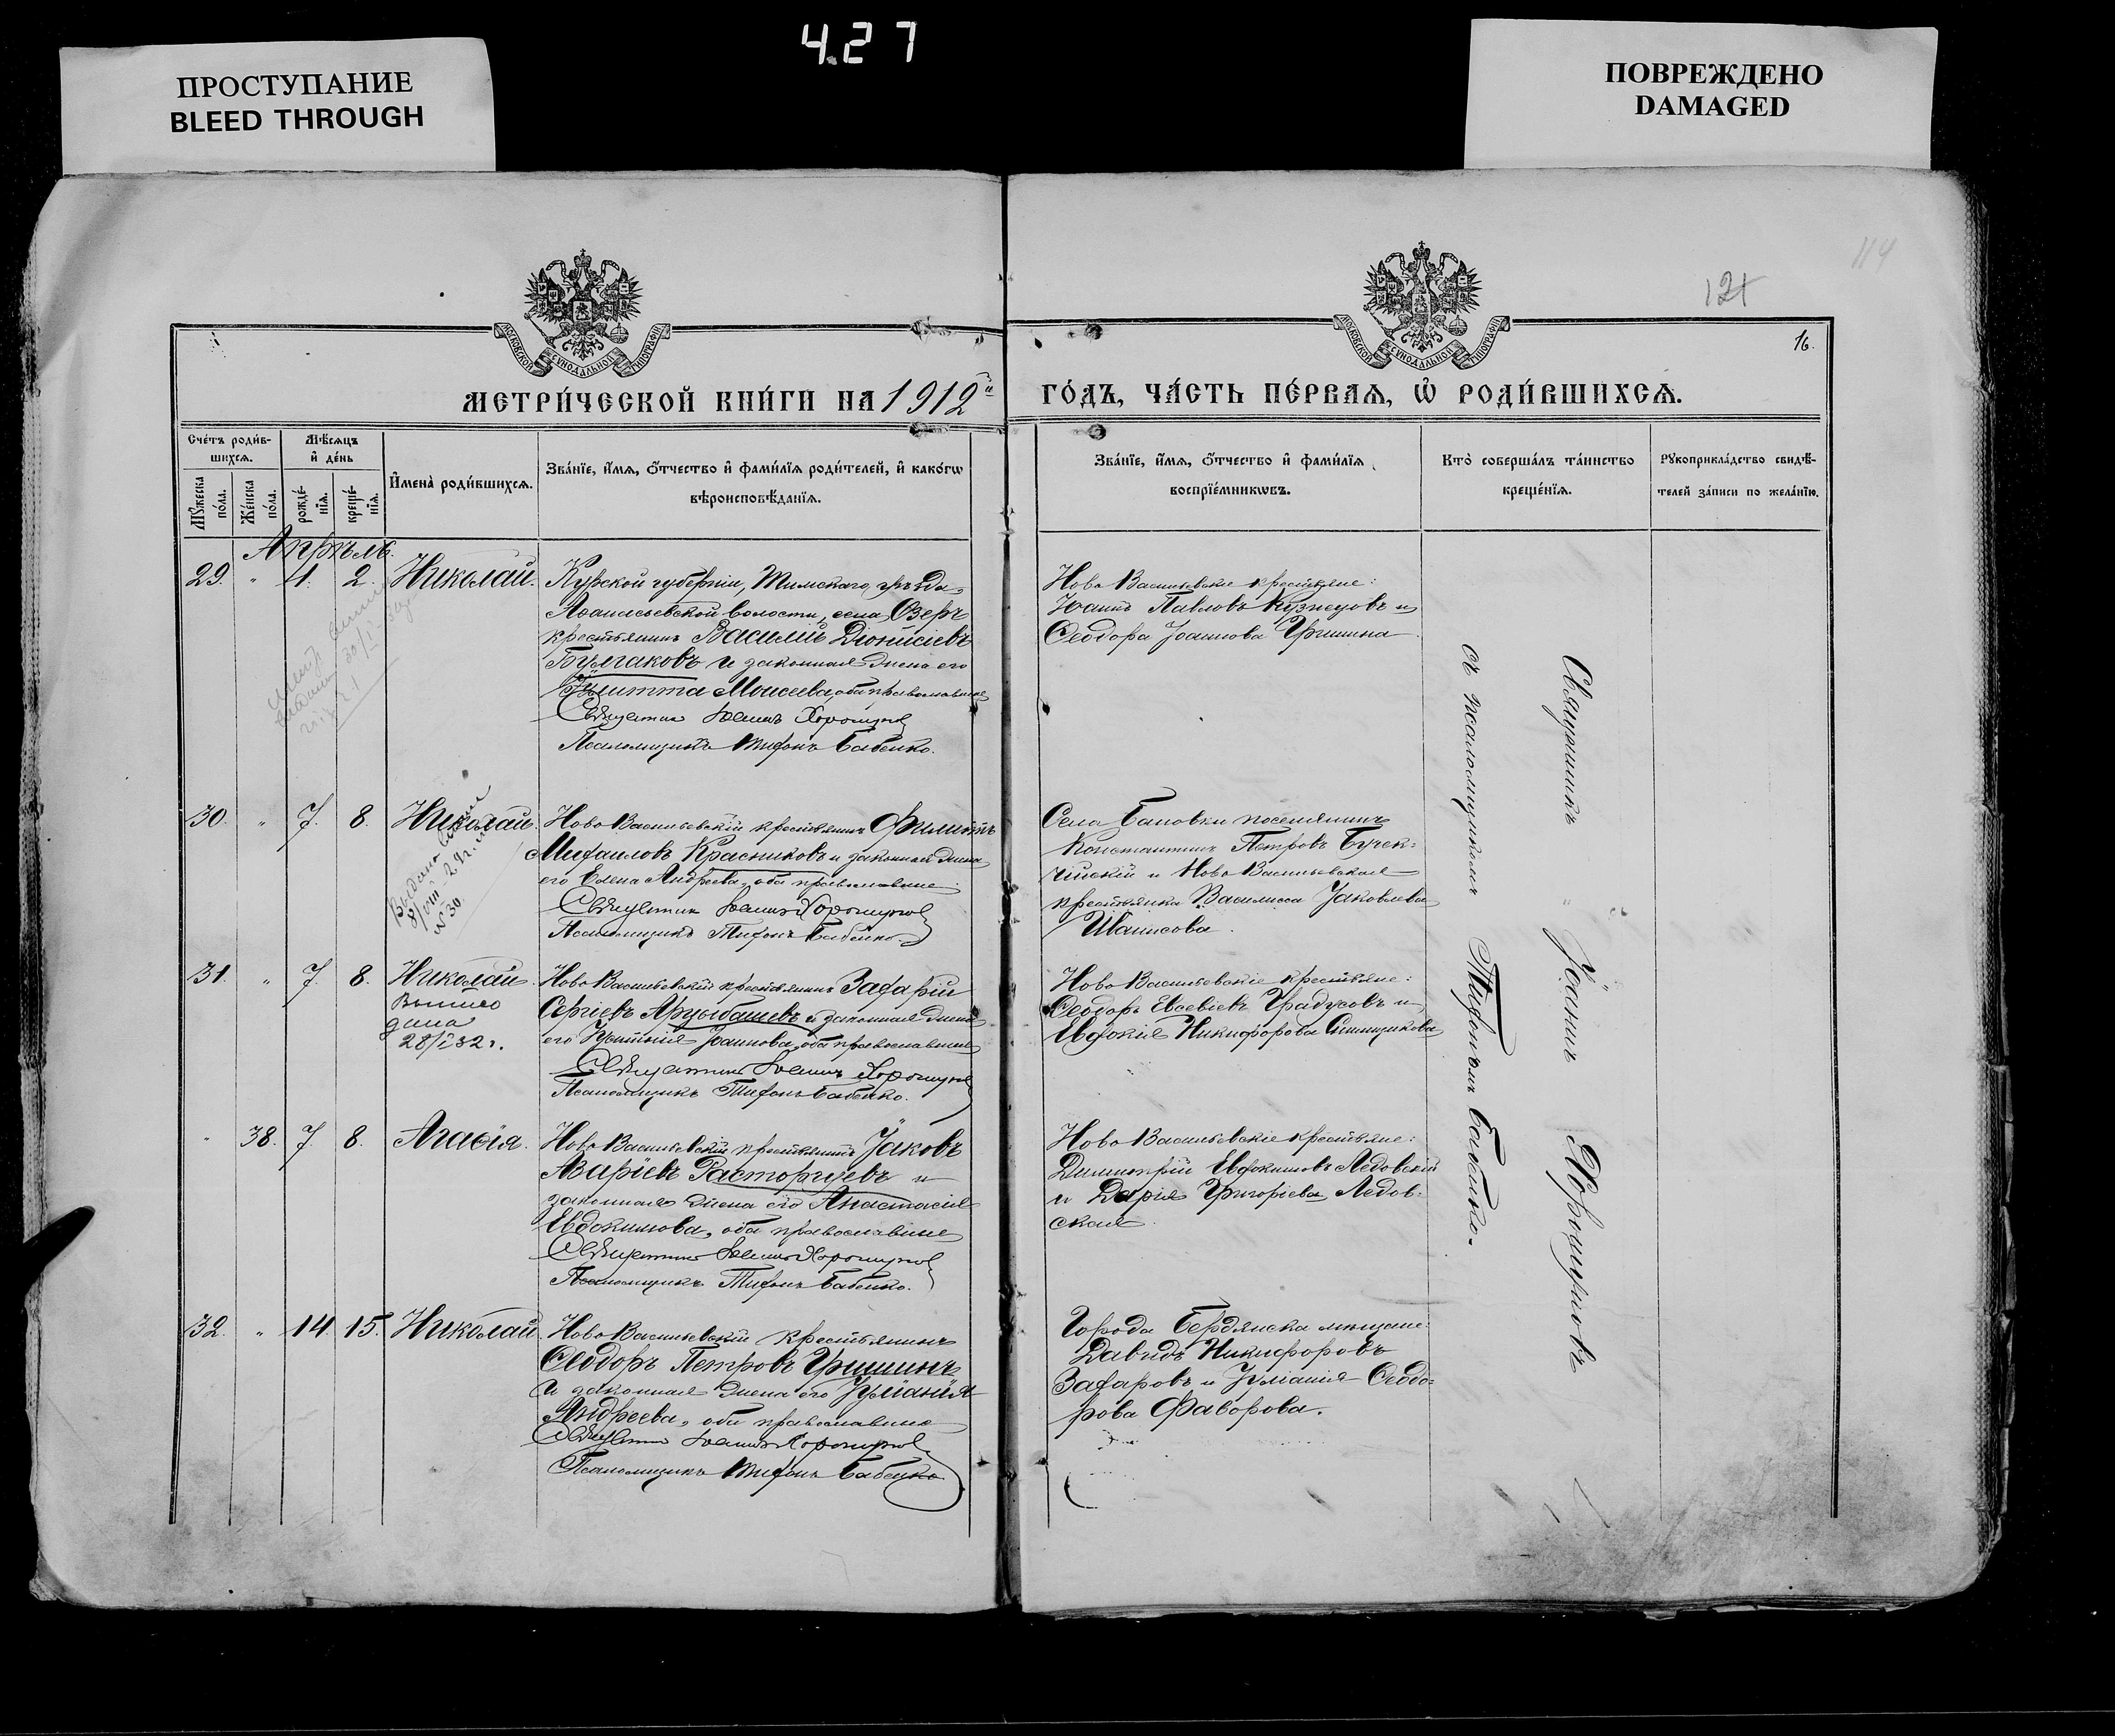 4.27
ПРОСТУПАНИЕ
BLEED THROUGH
ПОВРЕЖДЕНО
DAMAGED
114
121
16.
МОСКОВСКОЙ СѴНОДАЛЬНОЙ ТИПОГРАФІИ
МОСКОВСКОЙ СѴНОДАЛЬНОЙ ТИПОГРАФІИ
МЕТРИ́ЧЕСКОЙ КНИ́ГИ НА 1912й ГО́ДЪ, ЧА́СТЬ ПЕ́РВАѦ, Ѡ҆ РОДИ́ВШИХСѦ.
Сче́тъ роди́в-
шихсѧ.
Мꙋжеска по́ла.
Же́нска по́ла.
Мѣ́сѧцъ
и҆ де́нь
рожде́-
нїѧ.
креще́-
нїѧ.
И҆мена̀ роди́вшихсѧ.
Зва́нїе, и҆́мѧ, ѻ҆́тчество и҆ фами́лїѧ роди́телей, и҆ како́гѡ
вѣроисповѣ́данїѧ.
Зва́нїе, и҆́мѧ, ѻ҆́тчество и҆ фами́лїѧ
воспрїе́мникѡвъ.
Кто̀ соверша́лъ та́инство
креще́нїѧ.
Рꙋкоприкла́дство свидѣ́-
телей за́писи по жела́нїю.
Апрѣль.
29. " 1. 2. Николай.
Курской губерніи, Тимскаго уѣзда,
волости, села Озеръ
крестьянинъ Василій Діонисіевъ
Булгаковъ и законная жена его
Моисеева, оба православные
Священникъ Іоаннъ Хорошуновъ
Псаломщикъ Тифонъ Бабенко.
Ново Васильевскіе крестьяне:
Іоаннъ Павловъ Кузнецовъ и
Ѳеодора Іоаннова Гришина
30. " 7. 8. Николай.
Выдано
№ 30.
Ново Васильевскій крестьянинъ Филиппъ
Михаиловъ Красниковъ и законная жена
его Елена Андреева, оба православные
Священникъ Іоаннъ Хорошуновъ
Псаломщикъ Тифонъ Бабенко.
Села Бановки поселянинъ
Константинъ Петровъ
и Ново Васильевская
крестьянка Василисса Яковлева
Иванисова.
31. " 7. 8. Николай.
дана
28/I 32 г.
Ново Васильевскій крестьянинъ Захарій
Сергіевъ Арцыбашевъ и законная жена
его Іоаннова, оба православные
Священникъ Іоаннъ Хорошуновъ
Псаломщикъ Тифонъ Бабенко.
Ново Васильевскіе крестьяне:
Ѳеодоръ Евсевіевъ Градусовъ и
Евдокія Никифорова
" 38. 7. 8. Агаѳія.
Ново Васильевскій крестьянинъ Іаковъ
Азаріевъ Расторгуевъ и
законная жена его Анастасія
Евдокимова, оба православные
Священникъ Іоаннъ Хорошуновъ
Псаломщикъ Тифонъ Бабенко.
Ново Васильевскіе крестьяне:
Димитрій Евдокимовъ Ледовскій
и Дарія Григоріева Ледов-
ская.
32. " 14. 15. Николай.
Ново Васильевскій крестьянинъ
Ѳеодоръ Петровъ Гришинъ
и законная жена его Іуліанія
Андреева, оба православные
Священникъ Іоаннъ Хорошуновъ
Псаломщикъ Тифонъ Бабенко
Города Бердянска мѣщане:
Давидъ Никифоровъ
Захаровъ и Іуліанія Ѳеодо-
рова Фаворова.
Священникъ Іоаннъ Хорошуновъ
съ псаломщикомъ Тифономъ Бабенко.